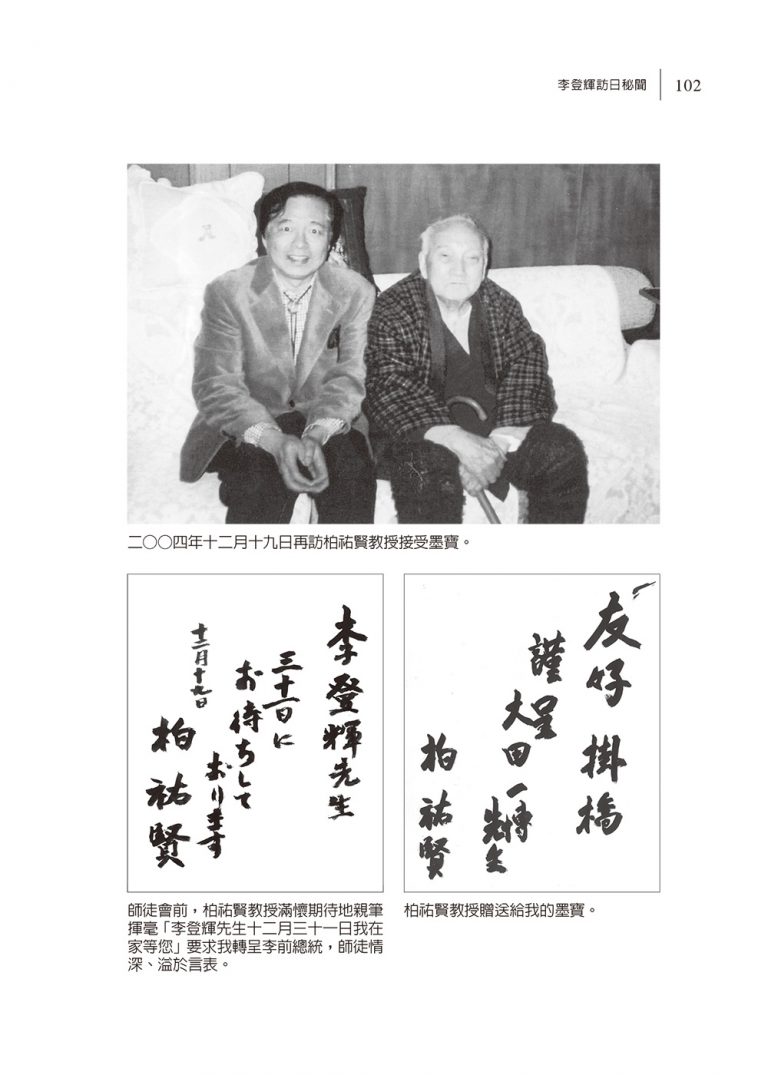 李登輝訪日秘聞 102
二〇〇四年十二月十九日再訪柏祐賢教授接受墨寶。
李登輝先生
三十一日に
お待ちして
おります
十二月十九日
柏祐賢
友好掛橋
謹呈
大田一博
先生
柏祐賢
師徒會前，柏祐賢教授滿懷期待地親筆
揮毫「李登輝先生十二月三十一日我在
家等您」要求我轉呈李前總統，師徒情
深、溢於言表。
柏祐賢教授贈送給我的墨寶。